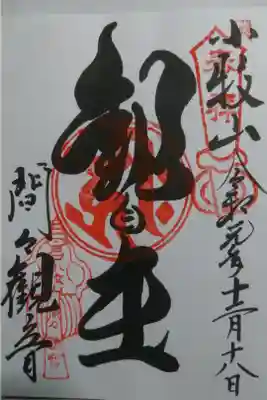 小牧山 令和元年十二月十八日
観自在
間々觀音